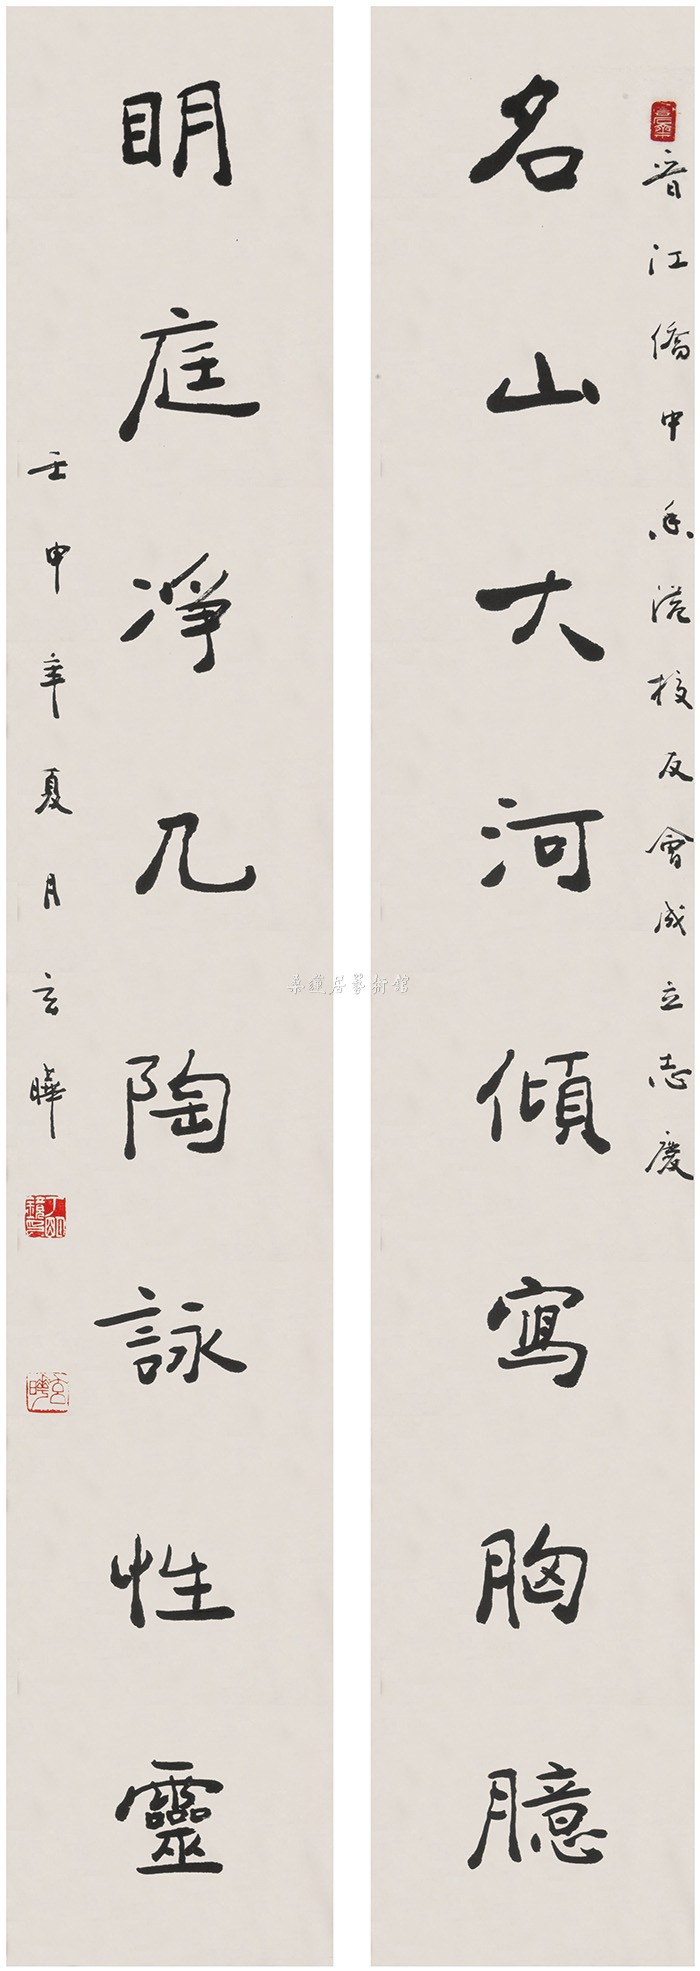 晉江僑中香港校友會成立志慶
名山大河傾寫胸臆
明庭凈几陶詠性靈
壬申年夏月玄曄
菜蓮居藝術館